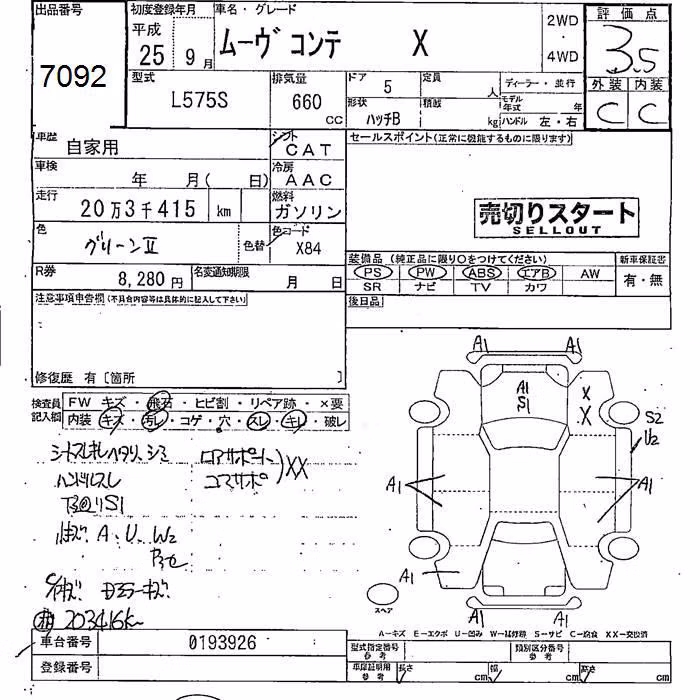 出品番号
7092
初度登録年月
平成
25年 9月
車名・グレード
ムーヴ コンテ X
2WD
・
4WD
評価点
3.5
外装 内装
C C
型式
L575S
排気量
660
CC
ドア 5
定員 人
形状
ハッチB
積載 kg
ディーラー・並行
モデル年式 年
ハンドル 左・右
車歴
自家用
シフト
CAT
車検
年 月( 日)
冷房
AAC
走行
20万3千415 km
燃料
ガソリン
色
グリーンII
色替
色コード
X84
R券
8,280円
名変通知期限
月 日
セールスポイント(正常に機能するものに限ります)
売切りスタート
SELLOUT
装備品 (純正品に限り○をつけてください)
PS PW ABS エアB AW
SR ナビ TV カワ
新車保証書
有・無
後日品
注意事項申告欄(不具合内容等は具体的に記入して下さい)
修復歴 有〔箇所 〕
検査員
記入欄
FW キズ・飛石・ヒビ割・リペア跡・×要
内装 キズ・汚レ・コゲ・穴・スレ・キレ・破レ
シートスレキレヘタリ、シミ
ロアサポート
ハンドルスレ
コアサポ
XX
S1
A・U・W2
203416K
A1 A1
A1
S1
X
X
S2
U2
A1 A1
A1
A1 A1
スペア
A-キズ E-エクボ U-凹み W-補修跡 S-サビ C-腐食 XX-交換済
車台番号
0193926
登録番号
型式指定番号
参考
類別区分番号
参考
車庫証明用
参考
長さ cm 幅 cm 高さ cm